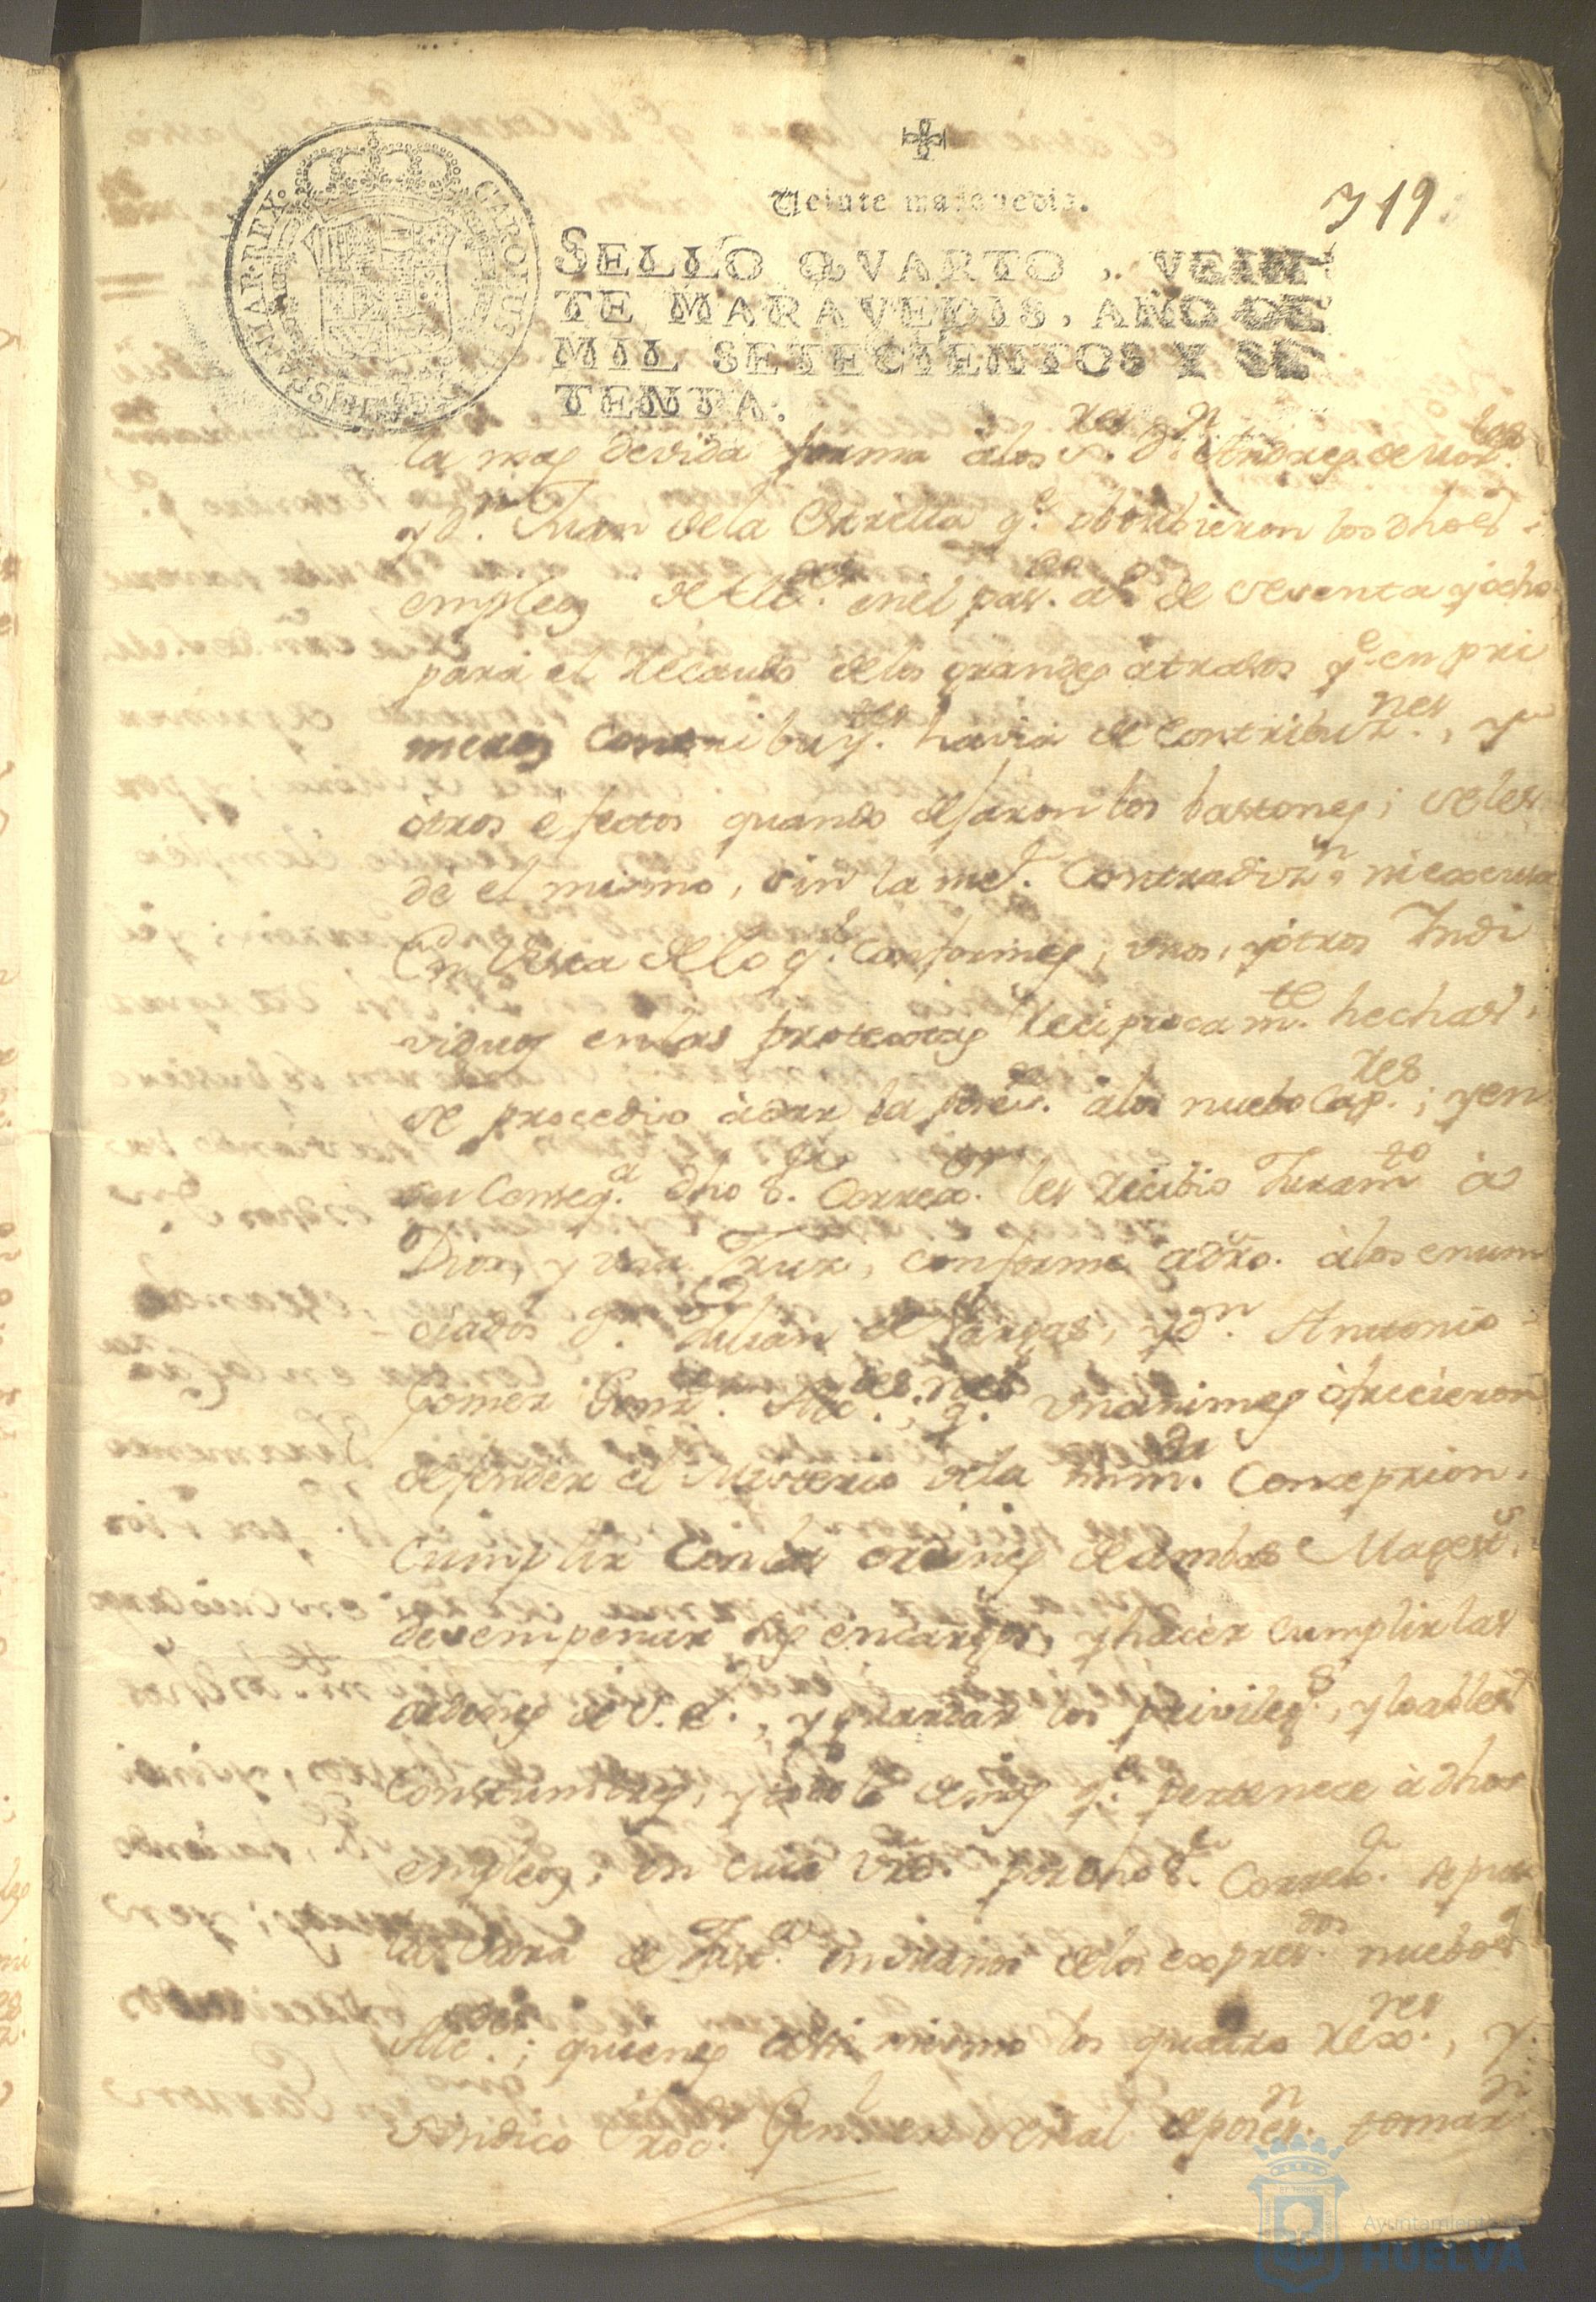 CAROLUS
HISPANIAR. REX.
Veinte maravedis.
719
SELLO QVARTO, VEIN-
TE MARAVEDIS, AÑO DE
MIL SETECIENTOS Y SE
TENTA.
la mas devida forma à los S.res D.n Andres de
y D.n Juan de la q.e obtubieron los dhos
empleos de en el pas.do a.o de sesenta y ocho
para el recaudo de los grandes atrasos q.e en pri
meros Contribuy.tes havia de Contribuz.nes, y
otros efectos quando dejaron los bastones; se les
dè el mismo, sin la me.r Contradiz.n ni excusa
En Vista de lo q.l Conformes, unos, y otros Indi
viduos en las protextas reciprocam.te hechas,
se procedio à dar la à los nuebo Cap.res; y en
su Conseq.a dho S.or Correx.or les recibio Juram.to à
Dios, y una Cruz, conforme à dro. à los enun
ciados D.n Julian de Vargas, y D.n Antonio
Gomez q.nes unanimes ofrecieron
defender el Misterio de la Conzepcion,
Cumplir Con las ordenes de ambas Magest.s
desempeñar sus encargos, y hacer cumplir las
de S. E., y guardar los privileg.s, y loables
Constumbres, y todo lo demas q.e pertenece à dhos
empleos, en cuia por dho S.or Correx.or se puso
la Vara de Just.a en manos de los expres.dos nuebos
Alc.des; quienes assi mismo los quatro rex.res, y
Sindico Proc.r Gen.l en señal de poses.n tomar.n
Ayuntamiento de
HUELVA